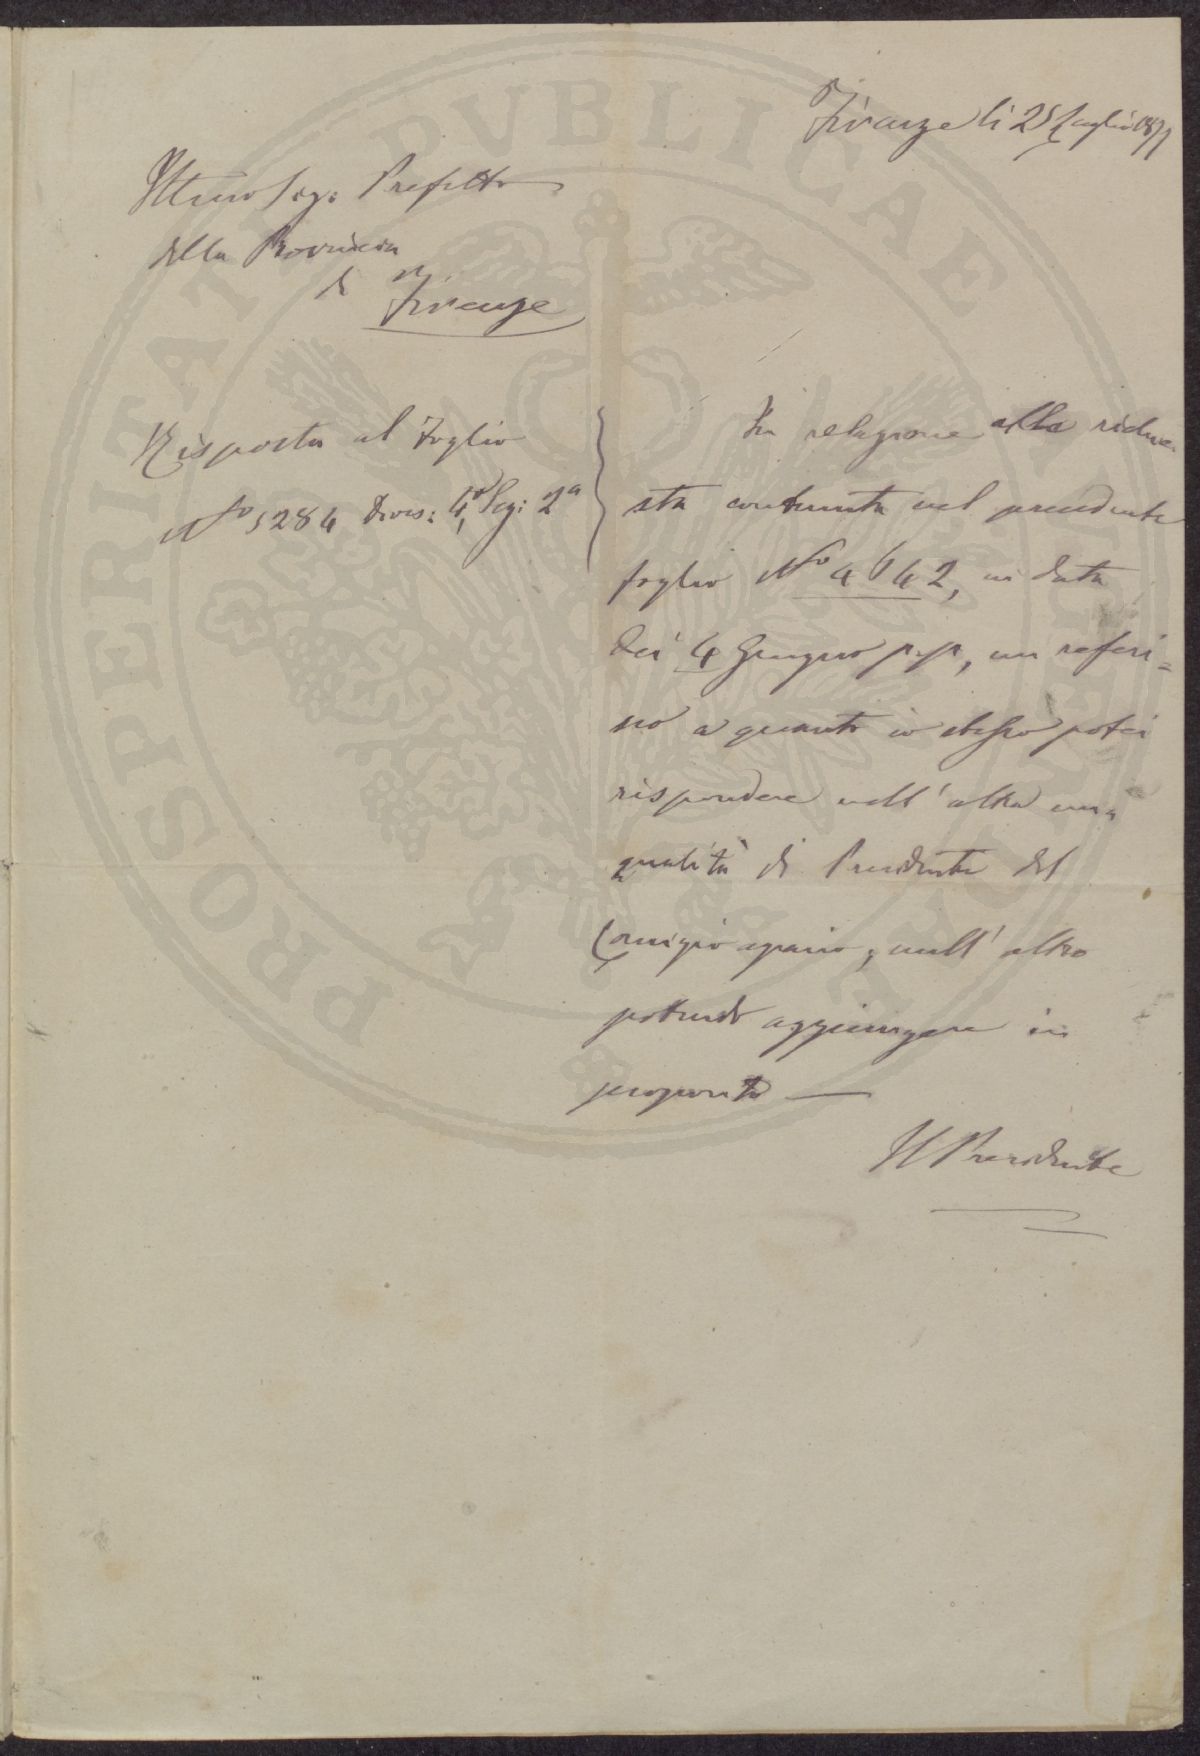 Firenze li 25 Luglio 1877
Illmo Sig: Prefetto
della Provincia
di Firenze
Risposta al foglio
No 5284 Divis: 4a, Sez: 2a
In relazione alla richie-
sta contenuta nel precedente
foglio No 4642, in data
dei 4 Giugno p.p., mi riferi=
sco a quanto io stesso potei
rispondere nell'altra mia
qualità di Presidente del
Comizio agrario, null'altro
potendo aggiungere in
proposito —
Il Presidente
PROSPERITATI PVBLICAE